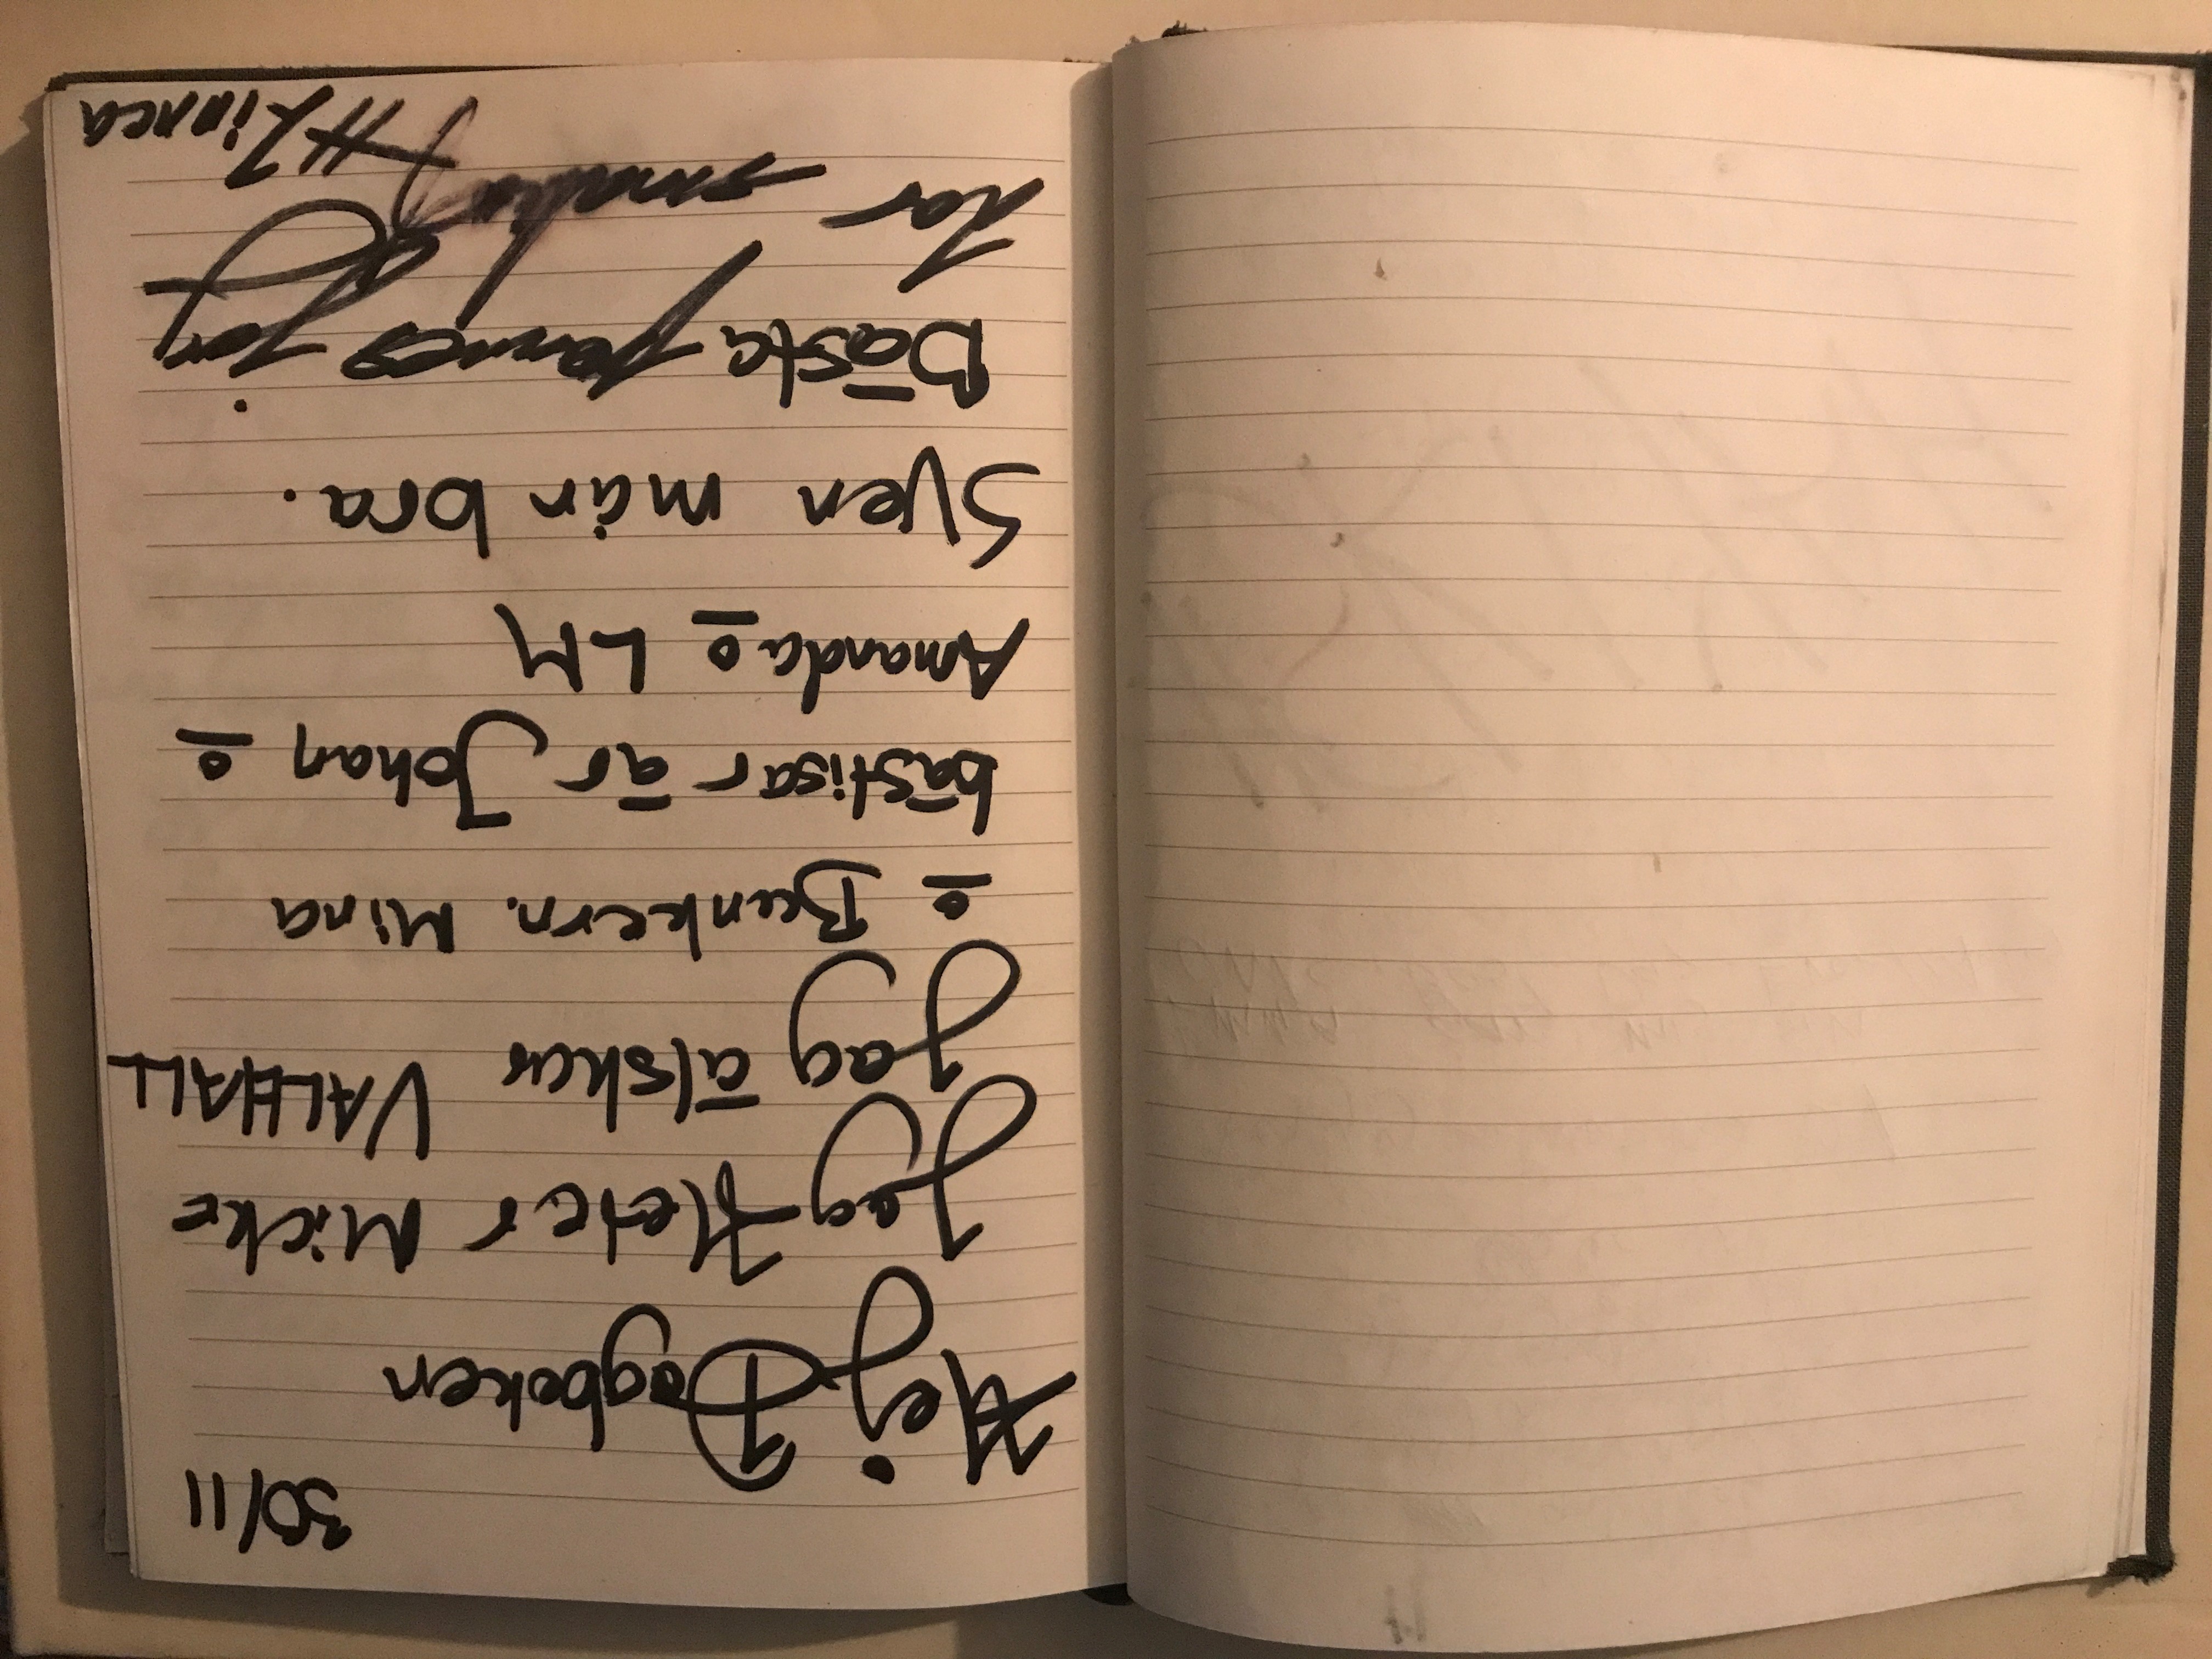 30/11
Hej Dagboken
Jag Heter Micke
Jag älskar VALHALL
o Bunkern. Mina
bästisar är Johan o
Amanda o LM
Sven mår bra.
Bästa
#Linnea